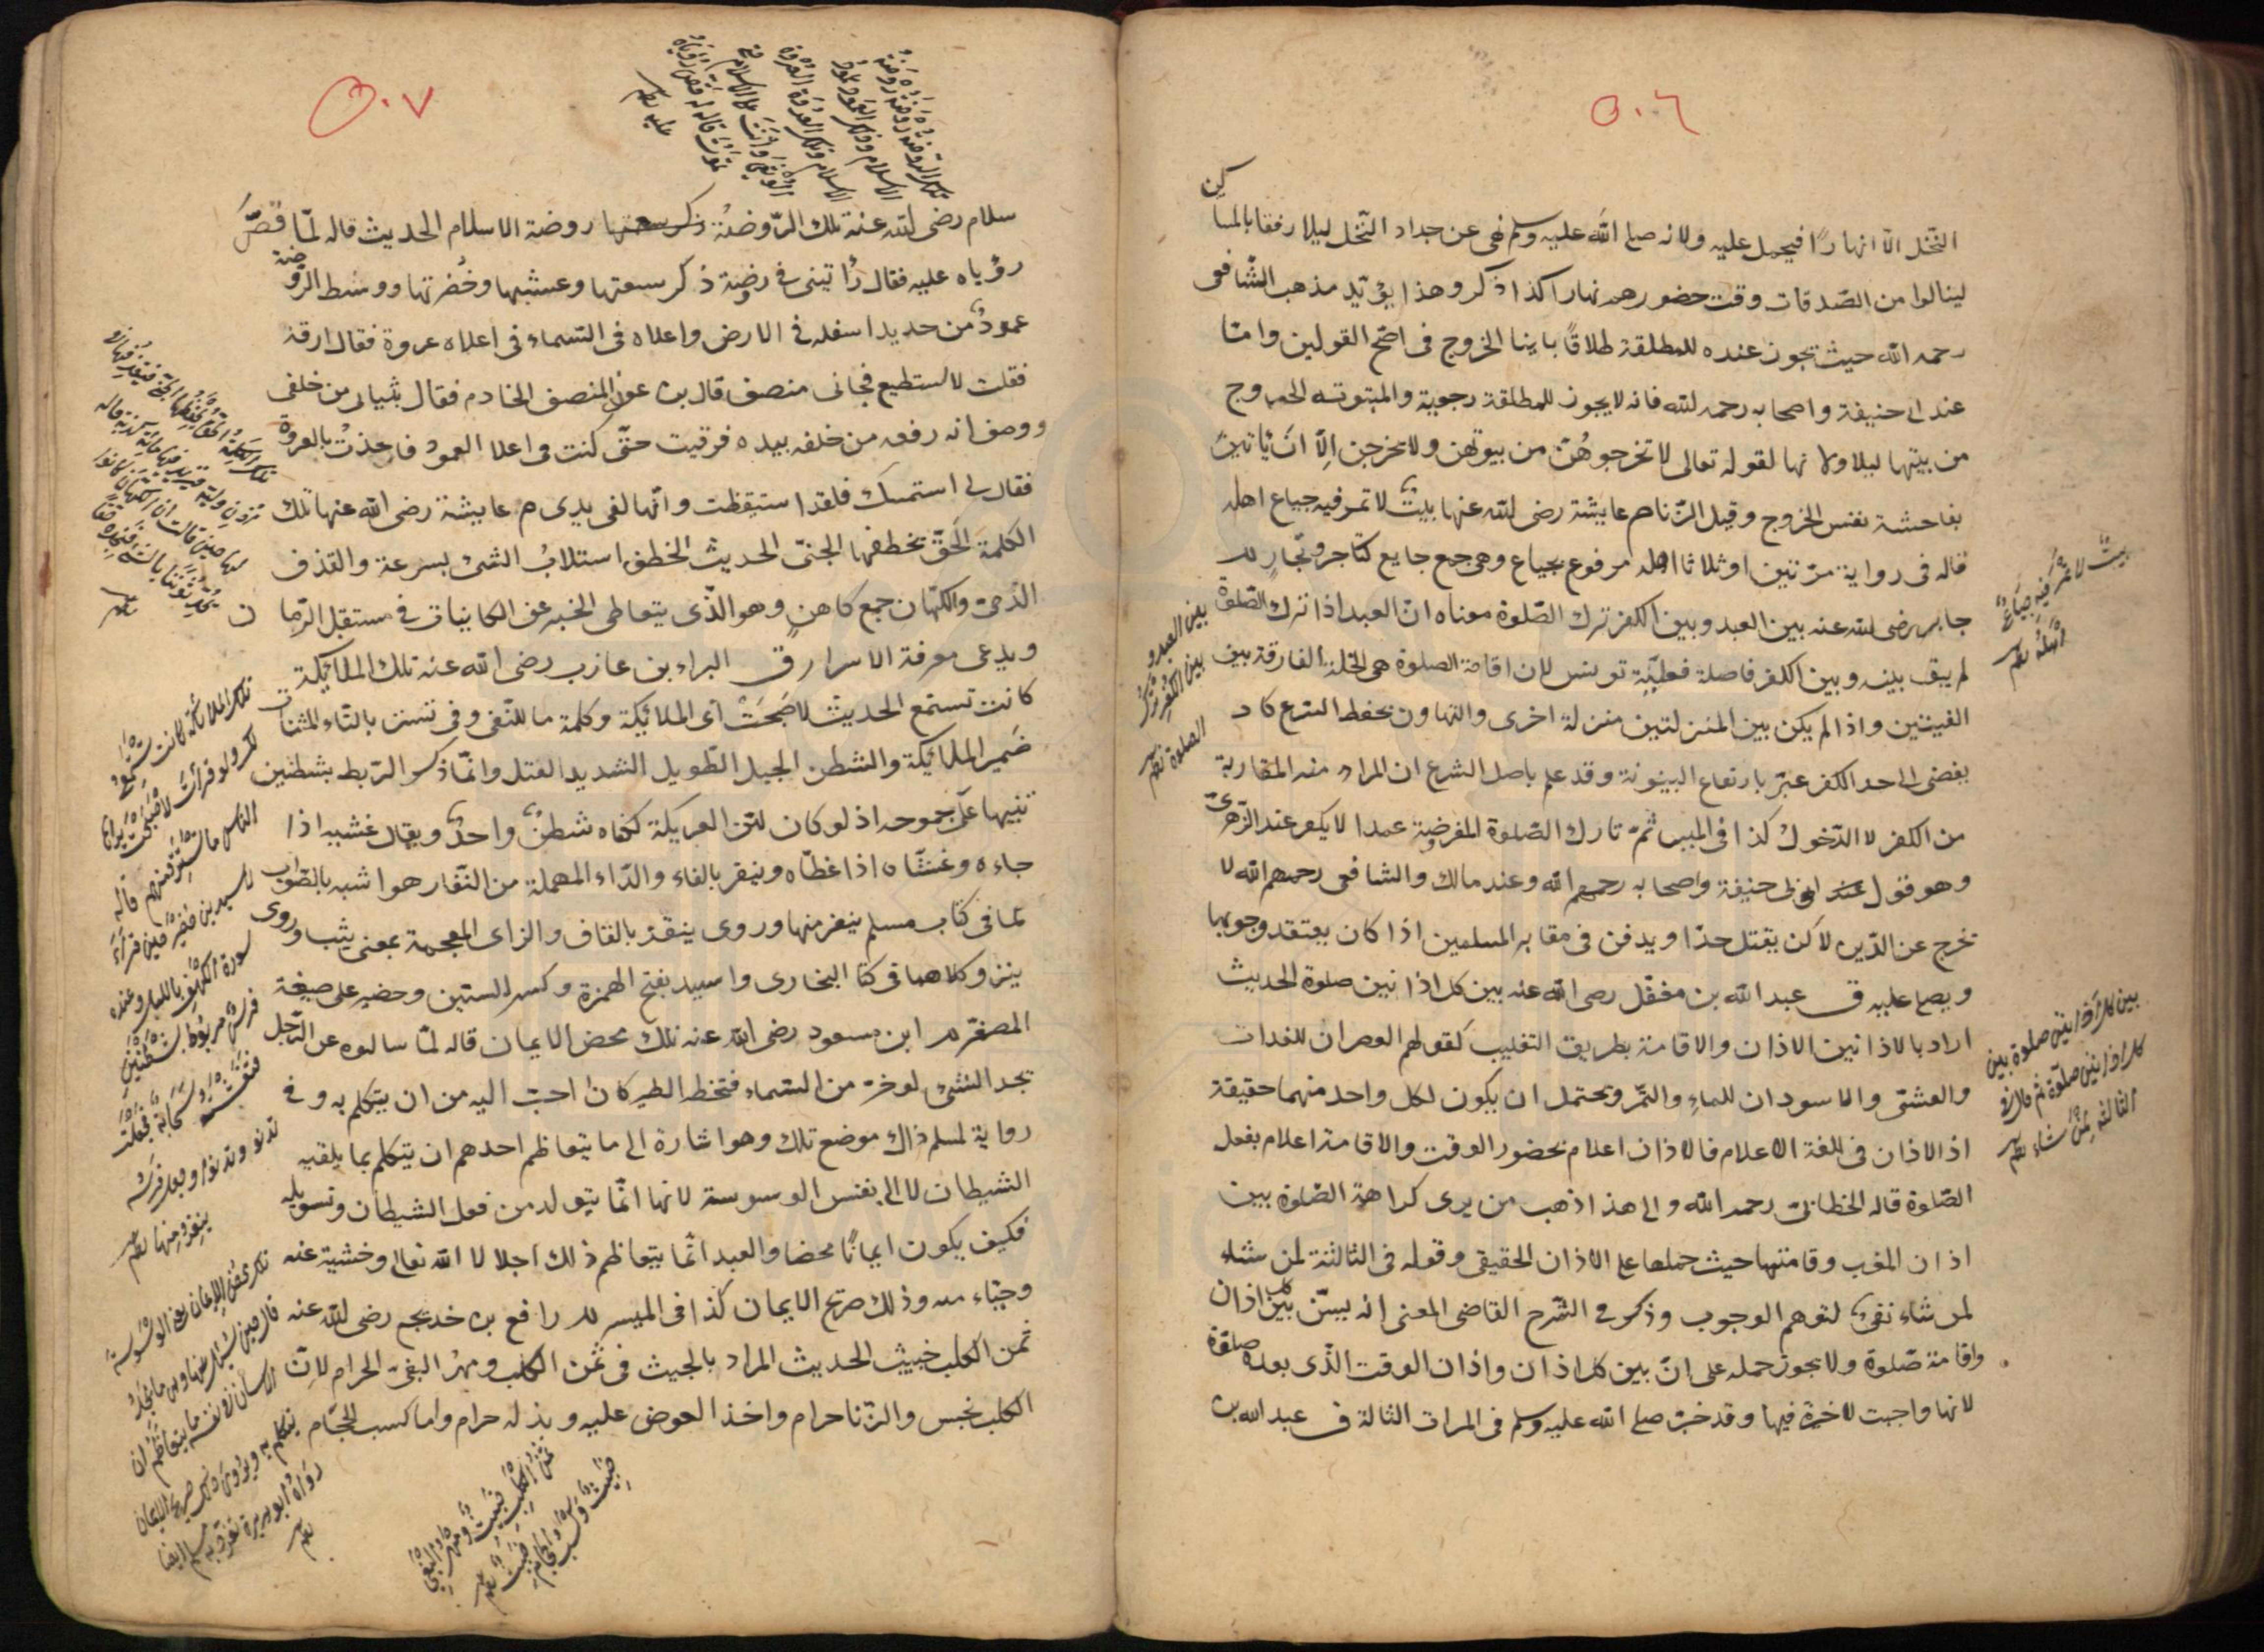 ٥٠٦
النخل الا نهارًا فيحمل عليه ولانه صلى الله عليه وسلم نهى عن جداد النخل ليلا رفقا بالمساكين
لينالوا من الصدقات وقت حضورهم نهارا كذا ذكر وهذا يؤيد مذهب الشافعى
رحمه الله حيث يجوز عنده للمطلقة طلاقًا باينا الخروج فى اصح القولين واما
عند ابى حنيفة واصحابه رحمه الله فانه لا يجوز للمطلقة رجعية والمبتوتة الخروج
من بيتها ليلا ولا نهارا لقوله تعالى لا تخرجوهُنّ من بيوتهن ولا يخرجن اِلّا انَ ياتين
بفاحشة نفس الخروج وقيل الزنا م عايشة رضى الله عنها بيتٌ لا تمر فيه جياع اهله
قاله فى رواية مرتين او ثلاثا اهله مرفوع بجياع وهى جمع جايع كتاجر وتجارٍ
جابر رضى الله عنه بين العبد وبين الكفر ترك الصلوة معناه ان العبد اذا ترك الصلوة
لم يبق بينه وبين الكفر فاصلة فعلية تونس لان اقامة الصلوة هى الخلة الفارقة بين
الفيئتين واذا لم يكن بين المنزلتين منزلة اخرى والتهاون بحفظ الشرع كاد
يفضى الى حد الكفر عبّر بارتفاع البينونة وقد علم باصل الشرع ان المراد منه المقاربة
من الكفر لا الدخول كذا فى الميسر ثمّ تارك الصلوة المفروضة عمدا لا يكفر عند الزهرى
وهو قول ابى حنيفة واصحابه رحمهم الله وعند مالك والشافعى رحمهم الله لا
يخرج عن الدين لاكن يقتل حدا ويدفن فى مقابر المسلمين اذا كان يعتقد وجوبها
ويصلى عليه ق عبد الله بن مغفّل رضى الله عنه بين كل اذانين صلوة الحديث
اراد بالاذانين الاذان والاقامة بطريق التغليب كقولهم العصران للغدات
والعشى والاسودان للماءِ والتمر ويحتمل ان يكون لكل واحد منهما حقيقة
اذ الاذان فى اللغة الاعلام فالاذان اعلام بحضور الوقت والاقامة اعلام بفعل
الصلوة قاله الخطابى رحمه الله والى هذا ذهب من يرى كراهة الصلوة بين
اذان المغرب وقامتها حيث حملها على الاذان الحقيقى وقوله فى الثالثة لمن شاء
لمن شاء نفىٌ لتوهم الوجوب وذكر فى الشرح القاضى المعنى انه يسنّ بين كل اذان
واقامة صلوة ولا يجوز حمله على انّ بين كل اذان واذان الوقت الذى بعده صلوة
لانها واجبت لا خيرة فيها وقد خيّر صلى الله عليه وسلم فى المرات الثالثة ق عبد الله بن
بيت لا تمر فيه جياع
اهله
بين العبد و
بين الكفر ترك
الصلوة
بين كل اذانين صلوة بين
كل اذانين صلوة ثم قال فى
الثالثة لمن شاء
٥٠٧
تلك الروضة روضة
الاسلام وذلك العمود عمود
الاسلام وتلك العروة العروة
الوثقى وانت على الاسلام حتى
تموت قاله لما قص رؤياه
عليه
سلام رضى الله عنه تلك الرّوضةُ روضة الاسلام الحديث قاله لمّا قصّ
رؤياه عليه فقال رُايتنى فى روضة ذكر سعتها وعشبها وخُضرتها ووسط الروضة
عمودٌ من حديد اسفله فى الارض واعلاه فى السماء فى اعلاه عروة فقال ارقه
فقلت لا استطيع فجانى منصف قال بن عون المنصف الخادم فقال بثيابى من خلفى
ووصف انه رفعه من خلفه بيده فرقيت حتّى كنت فى اعلا العمود فاخذتُ بالعروة
فقال لى استمسك فلقد استيقظت وانها لفى يدى م عايشة رضى الله عنها تلك
الكلمة الَحقّ يخطفها الجنىّ الحديث الخطف استلابُ الشئ بسرعة والقذف
الرّمى والكهان جمع كاهن وهو الذى يتعاطى الخبر عن الكاينات فى مستقبل الزمان
ويدعى معرفة الاسرار ق البراء بن عازب رضى الله عنه تلك الملائكة
كانت تستمع الحديث لاصَبحَتْ اى الملائكة وكلمة ما للنفى وفى تستتر بالتاء المثنات
ضمير الملائكة والشطن الحبل الطويل الشديد الفتل وانّما ذكر الربط بشطنين
تنبيها على جموحه اذ لو كان ليّن العريكة لكفاه شطنٌ واحدٌ ويقال غشيه اذا
جاءه وغشّاه اذا غطّاه وينفر بالفاء والرّاء المهملة من النفار هو اشبه بالصّواب
لما فى كتاب مسلم ينفر منها وروى ينقز بالقاف والزاى المعجمة بمعنى يثب وروى
ينز وكلاهما فى كتا البخارى واسيد بفتح الهمزة وكسر السين وحضير على صيغة
المصغر م ابن مسعود رضى الله عنه تلك محض الايمان قاله لمّا سالوه عن الرّجل
يجد الشئ لو خرّ من السماء فتخطفه الطير كان احبّ اليه من ان يتكلم به وفى
رواية لمسلم ذاك موضع تلك وهو اشارة الى ما يتعاظم احدهم ان يتكلم بما يلقيه
الشيطان لا الى نفس الوسوسة لانها انّما يتولد من فعل الشيطان وتسويله
فكيف يكون ايمانًا محضا والعبد انّما يتعاظم ذلك اجلالا لله تعالى وخشية عنه
وحياء منه وذلك صريح الايمان كذا فى الميسر م رافع بن خديج رضى الله عنه
ثمن الكلب خبيث الحديث المراد بالخبيث فى ثمن الكلب ومهر البغىّ الحرام لانّ
الكلب نجس والزنا حرام واخذ العوض عليه وبذله حرام واما كسب الحجّام
تلك الكلمة الحق يخطفها الجنى فيقذفها فى
اذن وليه ويزيد فيها مائة كذبة قاله
لها حين قالت ان الكهان كانوا
يحدثوننا بالشئ فنجده حقا
تلك الملائكة كانت تستمع
لك ولو قرأت لاصبحت يراها
الناس ما تستتر منهم قاله
لاسيد بن حضير حين قرأ
سورة الكهف بالليل وعنده
فرس مربوط بشطنين
فتغشته سحابة فجعلت
تدنو وتدنو وجعل فرسه
ينفر منها
تلك محض الايمان يعنى الوسوسة
قال حين سئل عنها وعن ما يجد
الانسان فى نفسه ما يتعاظم ان
يتكلم به ويروى ذلك صريح الايمان
رواه ابو هريرة تفرد به مسلم ايضا
ثمن الكلب خبيث ومهر البغى
خبيث وكسب الحجام
خبيث